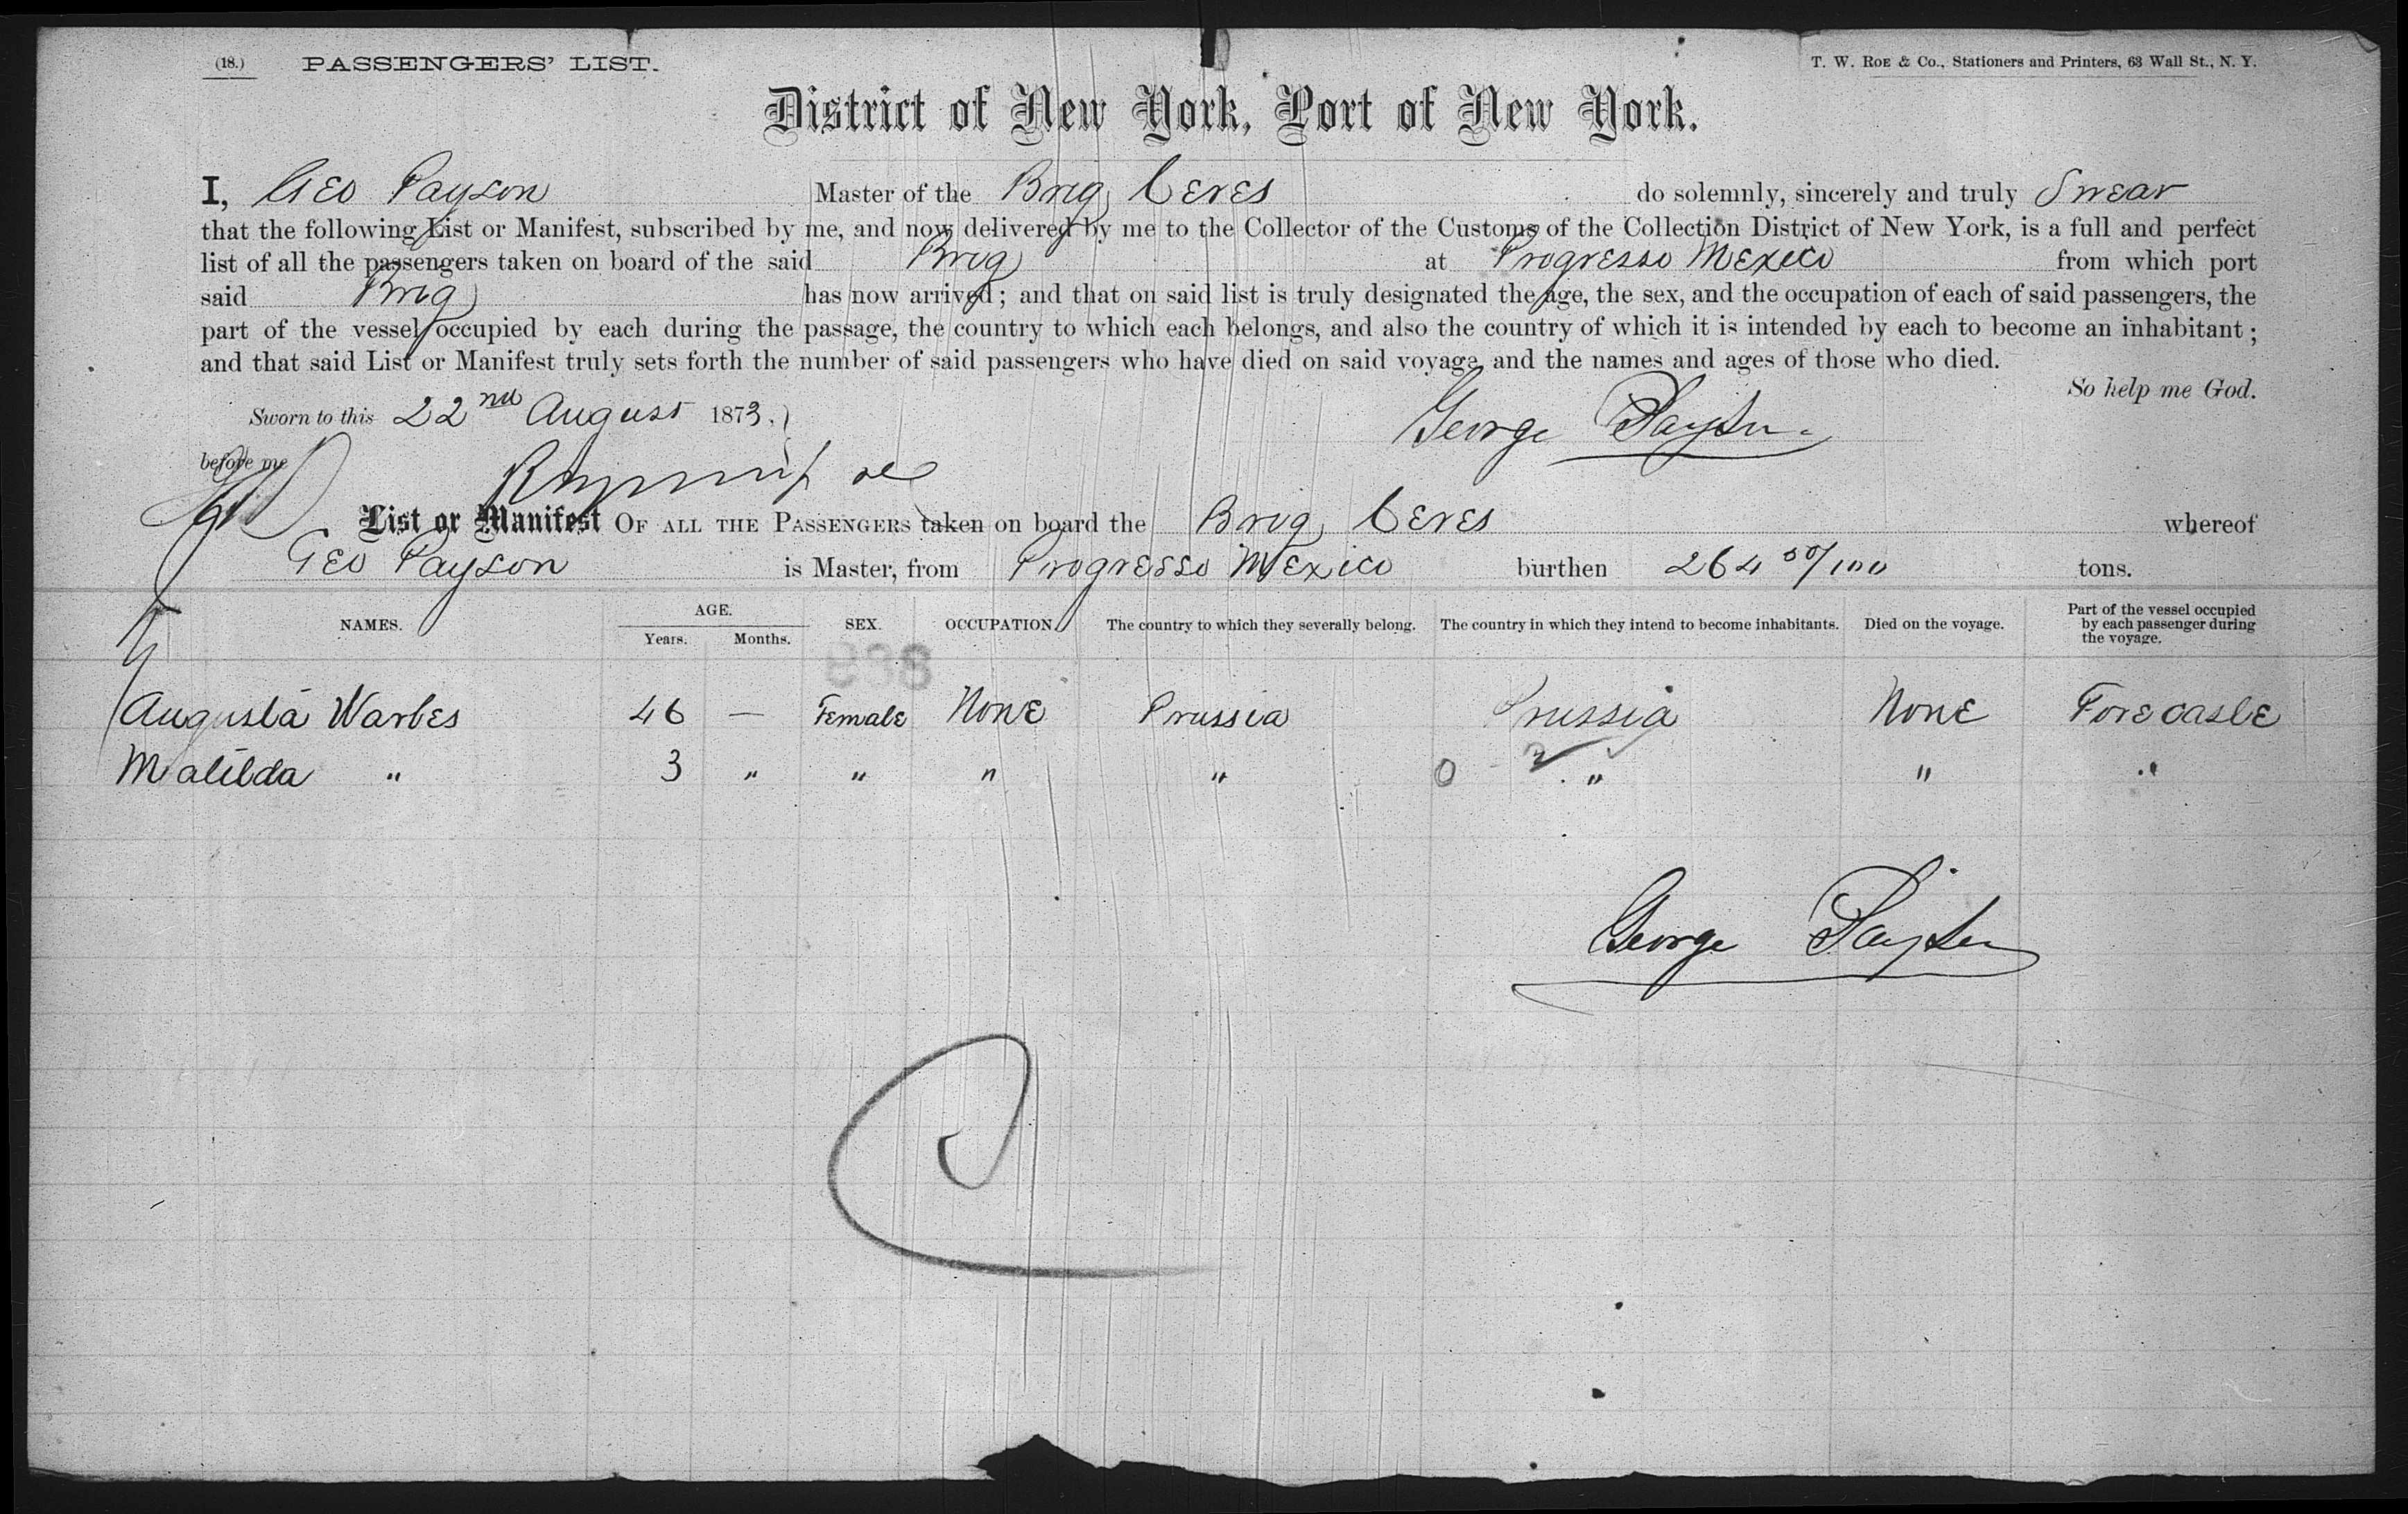 (18.) PASSENGERS' LIST.
T. W. ROE & Co., Stationers and Printers, 63 Wall St., N. Y.
District of New York, Port of New York.
I, Geo Payson Master of the Brig Ceres do solemnly, sincerely and truly Swear
that the following List or Manifest, subscribed by me, and now delivered by me to the Collector of the Customs of the Collection District of New York, is a full and perfect
list of all the passengers taken on board of the said Brig at Progresso Mexico from which port
said Brig has now arrived; and that on said list is truly designated the age, the sex, and the occupation of each of said passengers, the
part of the vessel occupied by each during the passage, the country to which each belongs, and also the country of which it is intended by each to become an inhabitant;
and that said List or Manifest truly sets forth the number of said passengers who have died on said voyage and the names and ages of those who died.
So help me God.
Sworn to this 22nd August 1873.
George Payson
before me
List or Manifest OF ALL THE PASSENGERS taken on board the Brig Ceres whereof
Geo Payson is Master, from Progresso Mexico burthen 264 50/100 tons.
NAMES. AGE. Years. Months. SEX. OCCUPATION. The country to which they severally belong. The country in which they intend to become inhabitants. Died on the voyage. Part of the vessel occupied by each passenger during the voyage.
938
Augusta Warbes 46 — Female None Prussia Prussia None Forecasle
Matilda " 3 " " " " 0 2 " " "
George Payson